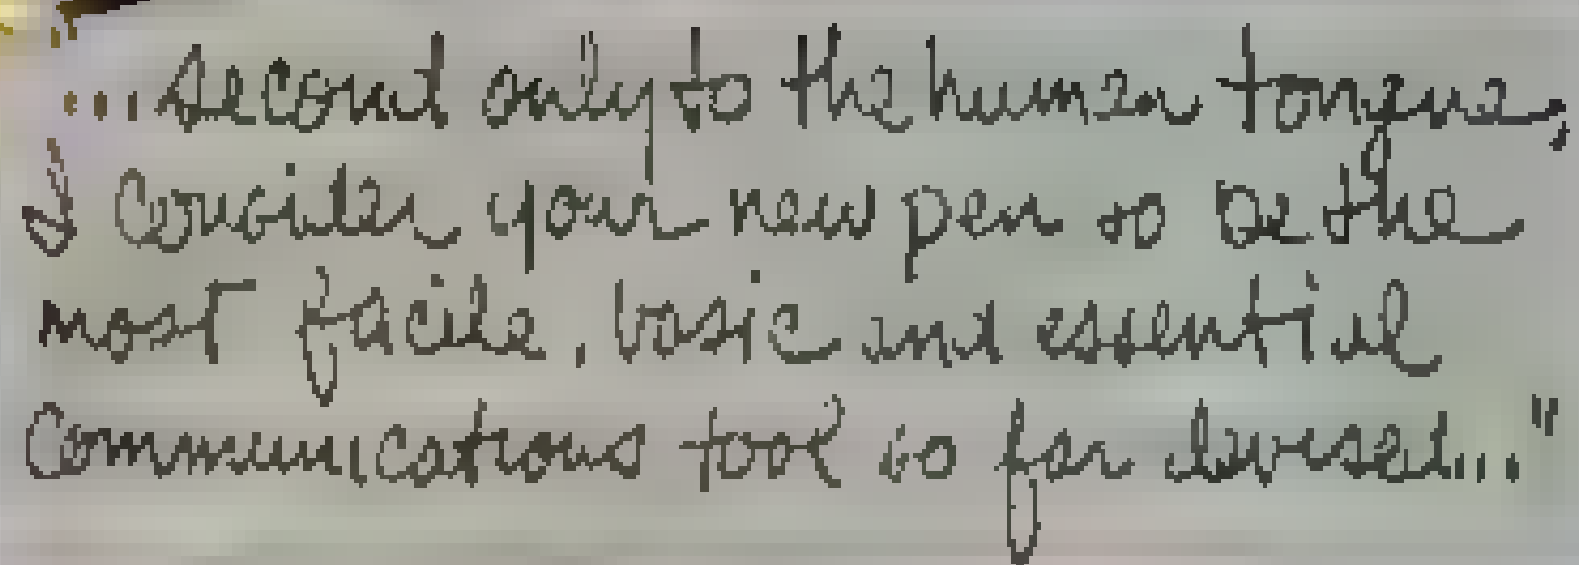 "...second only to the human tongue,
I consider your new pen to be the
most facile, basic and essential
communications tool so far devised..."